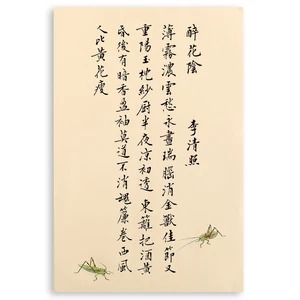 醉花陰
李清照
薄霧濃雲愁永晝瑞腦消金獸佳節又
重陽玉枕紗廚半夜涼初透 東籬把酒黃
昏後有暗香盈袖莫道不消魂簾卷西風
人比黃花瘦